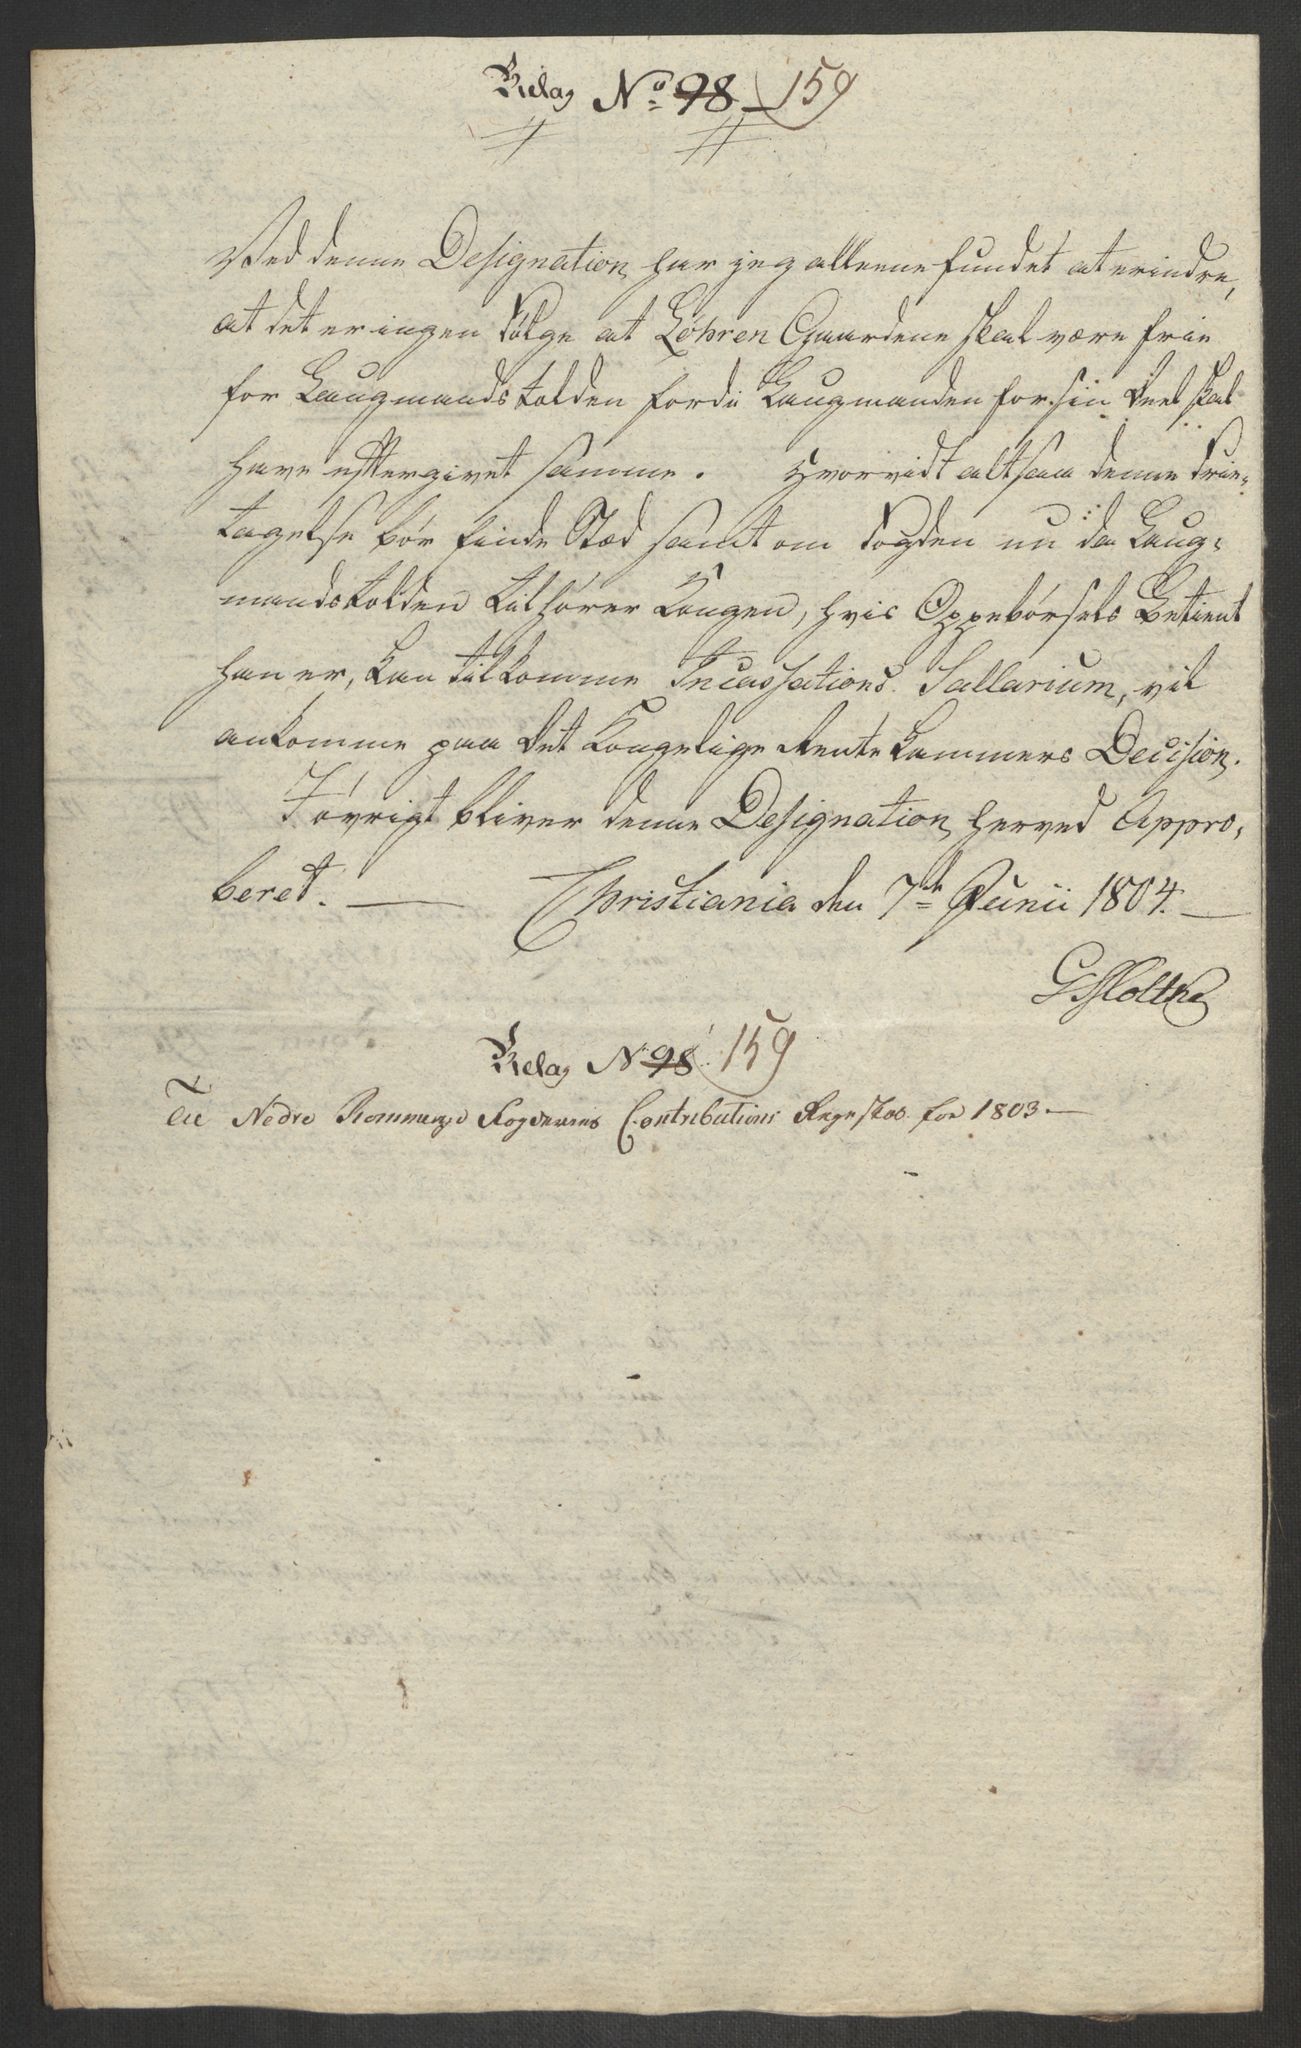 Bielag No 98 159
Ved denne Designation har jeg alleene fundet at erindre,
at det er ingen Følge at Løhren Gaardene skal være frie
for Laugmandstolden fordi Laugmanden for sin Deel skal
have eftergivet samme. Hvorvidt altsaa denne Frie-
tagelse bør finde Stæd samt om Fogden nu da Laug-
mandstolden tilhører Kongen, hvis Oppebørsels Betient
han er, kan tilkomme Incassations Sallarium, vil
ankomme paa det Kongelige Rentekammers Decision.
I øvrigt bliver denne Designation herved Appro-
beret. — Christiania den 7de Junii 1804. —
G Moltke
Bielag No 98 159
Til Nedre Rommerige Fogderies Contributions Regnskab for 1803 —